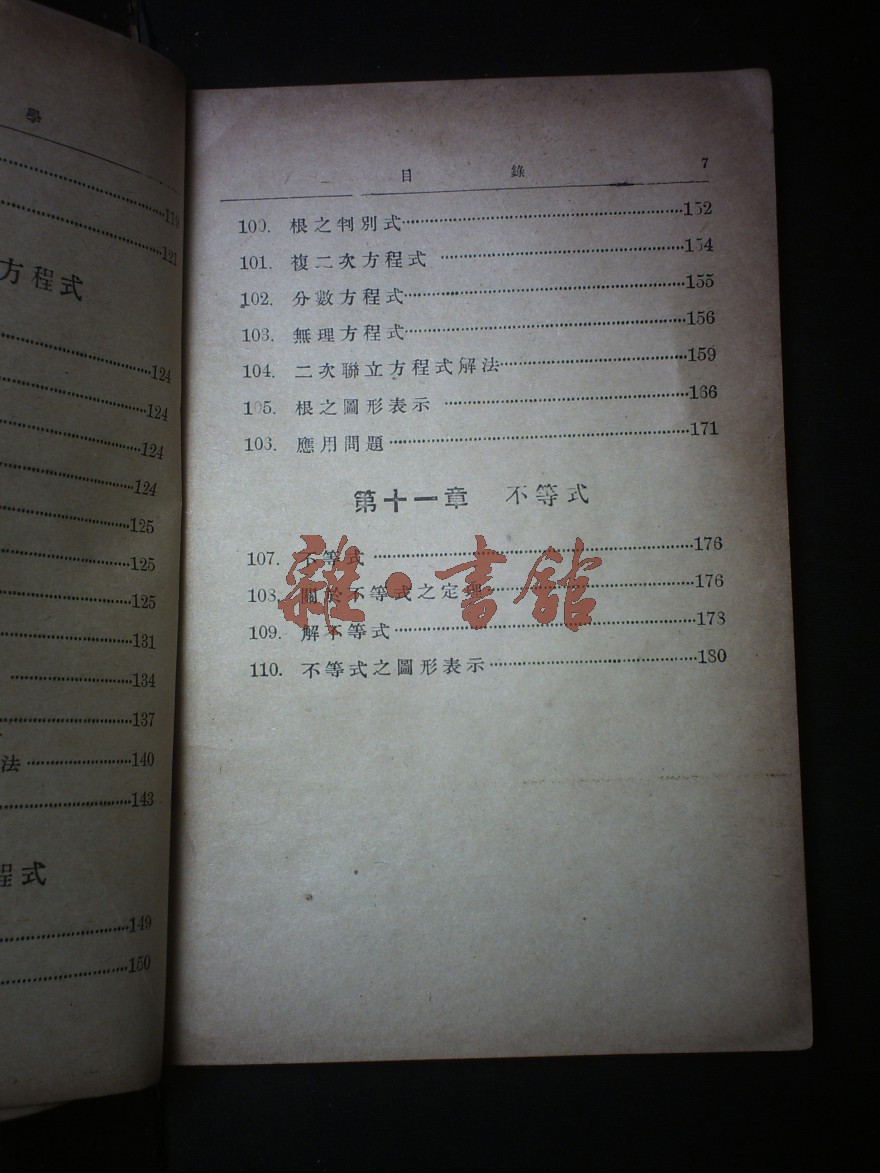 學
119
121
方程式
124
124
124
124
125
125
125
131
134
137
法 140
143
程式
149
150
目 錄 7
100. 根之判別式 152
101. 複二次方程式 154
102. 分數方程式 155
103. 無理方程式 156
104. 二次聯立方程式解法 159
105. 根之圖形表示 166
106. 應用問題 171
第十一章 不等式
107. 不等式 176
108. 關於不等式之定理 176
109. 解不等式 178
110. 不等式之圖形表示 180
雜·書館